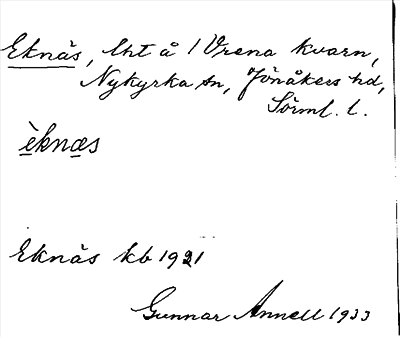 Eknäs, lht å 1 Vrena kvarn,
Nykyrka sn, Jönåkers hd,
Sörml. l.
èknæs
Eknäs kb 1921
Gunnar Annell 1933